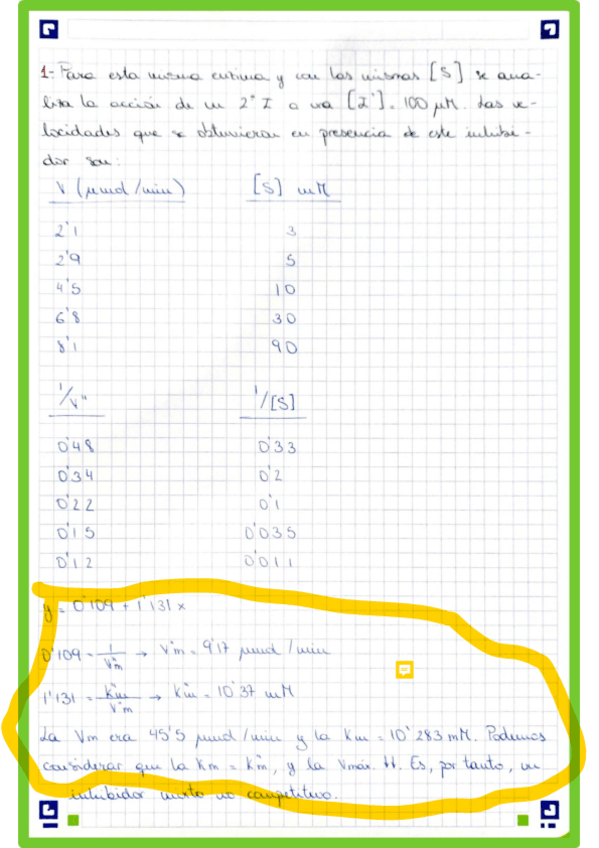 1- Para esta misma enzima y con las mismas [S] se ana-
liza la acción de un 2º I a una [I] = 100 μM. Las ve-
locidades que se obtuvieron en presencia de este inhibi-
dor son:
V (μmol/min) [S] mM
2'1 3
2'9 5
4'5 10
6'8 30
8'1 90
1/v" 1/[S]
0'48 0'33
0'34 0'2
0'22 0'1
0'15 0'035
0'12 0'011
y = 0'109 + 1'131 x
0'109 = 1/V"m → V"m = 9'17 μmol/min
1'131 = K"m/V"m → K"m = 10'37 mM
La Vm era 45'5 μmol/min y la Km = 10'283 mM. Podemos
considerar que la Km = K"m, y la Vmáx. ↓↓. Es, por tanto, un
inhibidor mixto no competitivo.